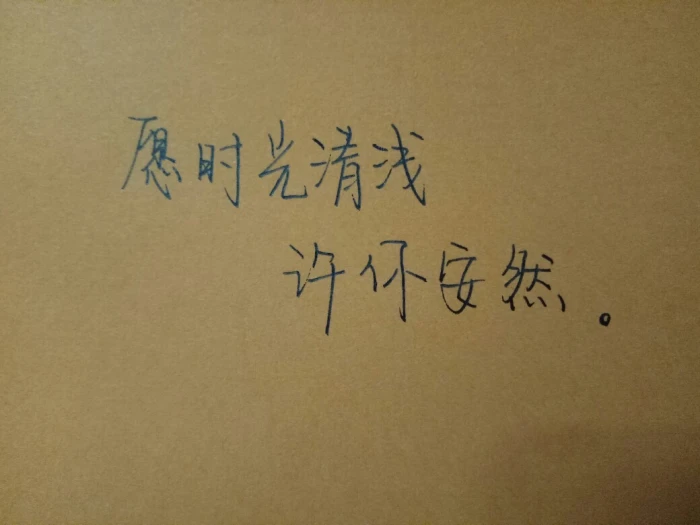 愿时光清浅
许你安然。